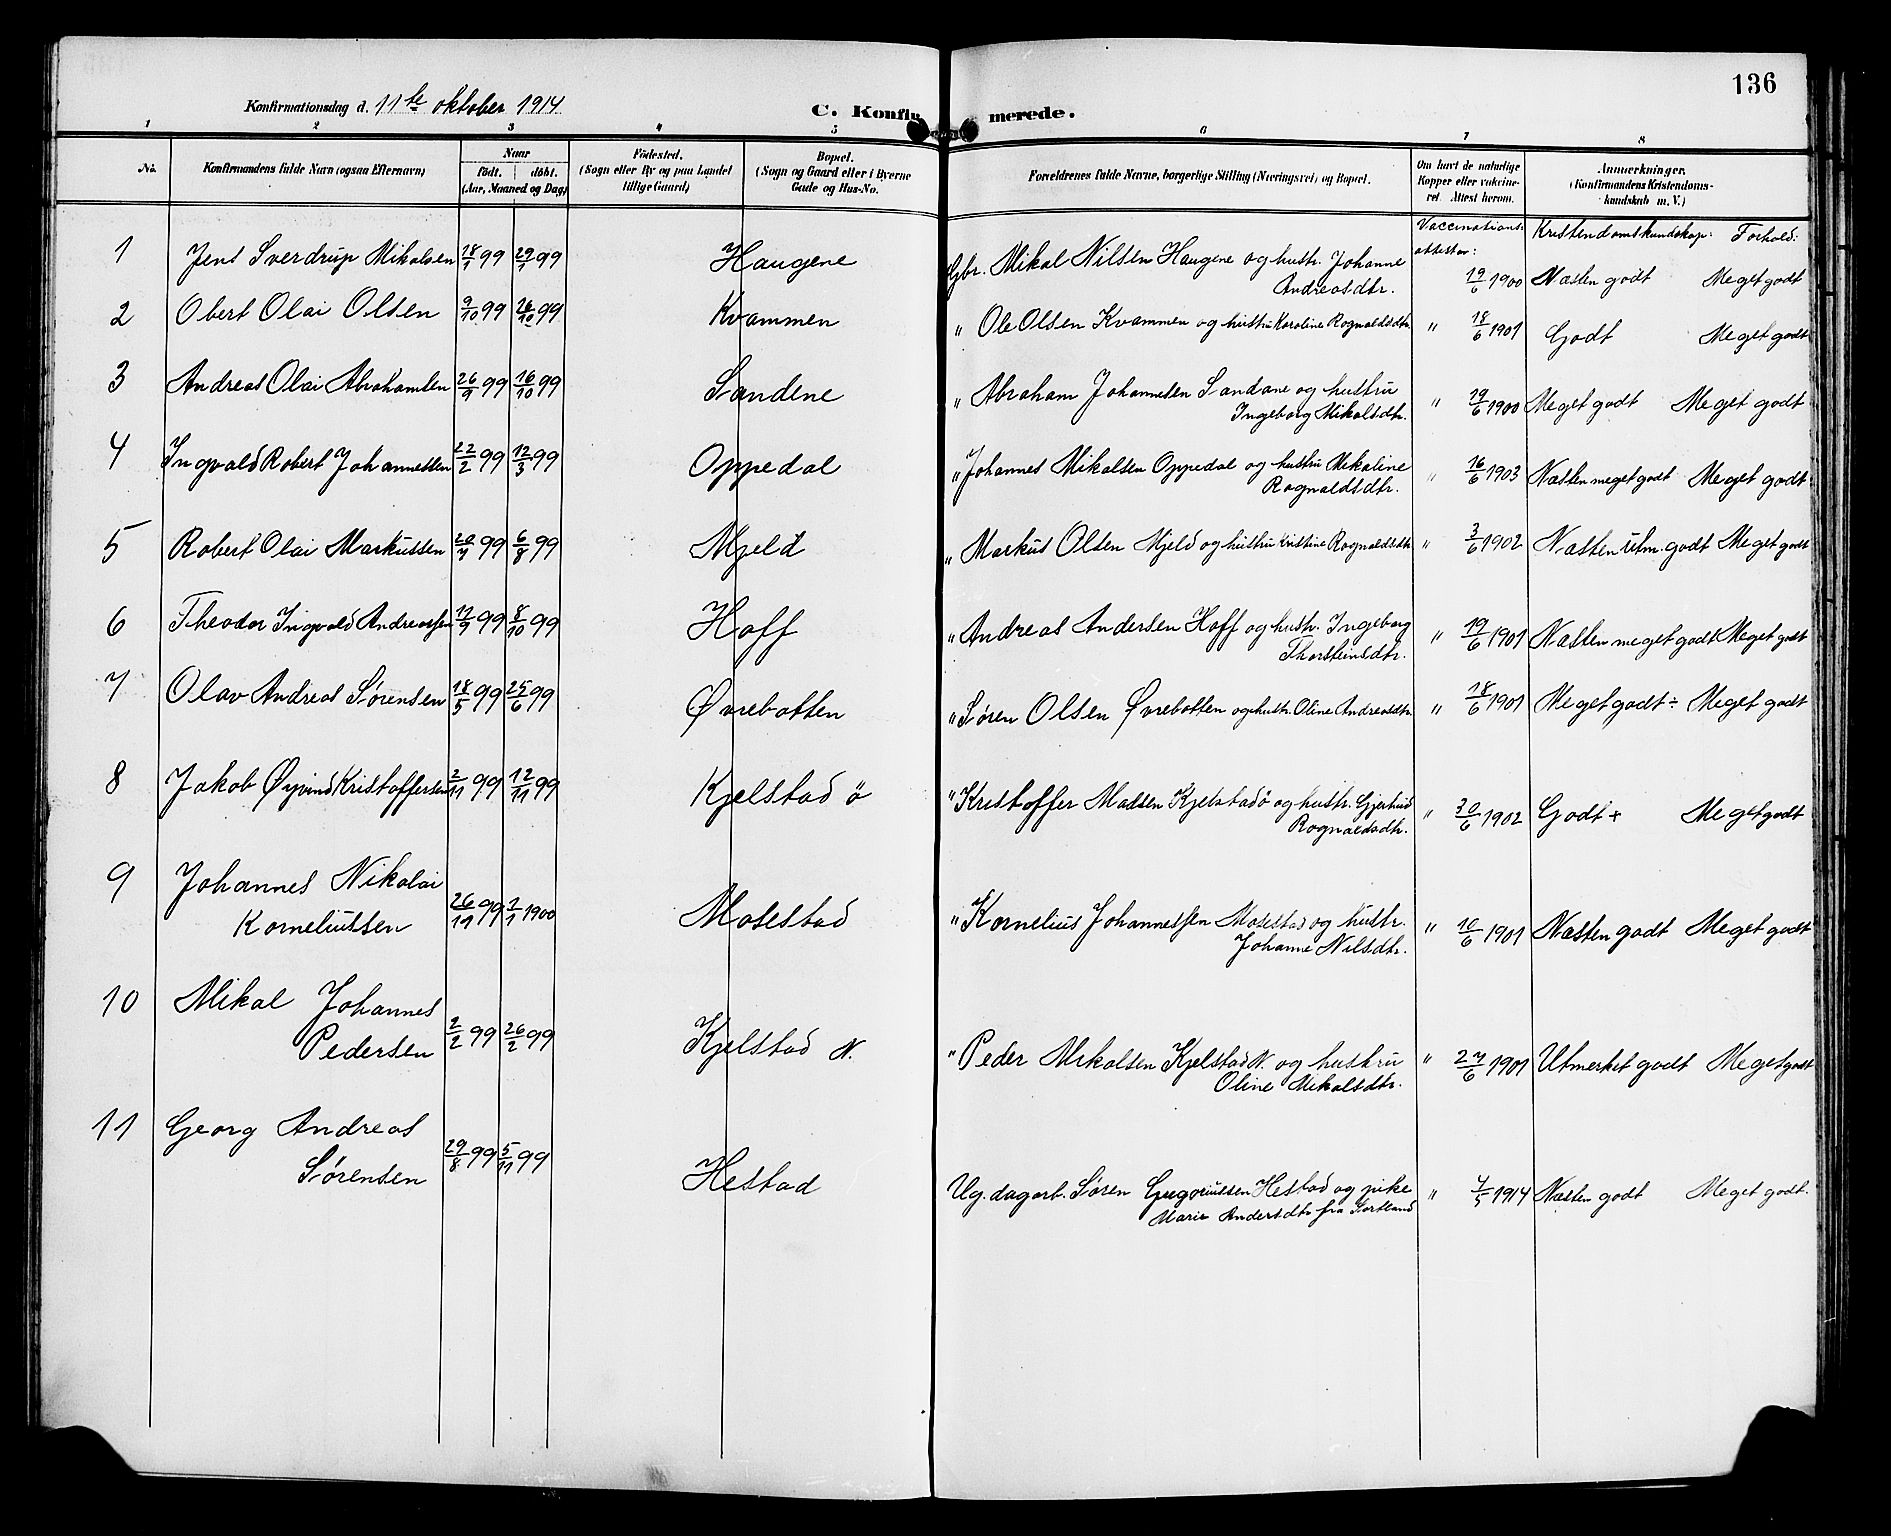 136
Konfirmationsdag d. 11te oktober 1914.
C. Konfirmerede.
1 2 3 4 5 6 7 8
No. Konfirmandens fulde Navn (ogsaa Efternavn) Naar født. døbt. (Aar, Maaned og Dag) Fødested. (Sogn eller By og paa Landet tillige Gaard) Bopæl. (Sogn og Gaard eller i Byerne Gade og Hus-No. Forældrenes fulde Navne, borgerlige Stilling (Næringsvei) og Bopæl. Om havt de naturlige Kopper eller vakcineret. Attest herom. Anmerkninger. (Konfirmandens Kristendomskundskab m. V.)
Vaccinationsattester: Kristendomskundskap: Forhold:
1 Jens Sverdrup Mikalsen 18/1 99 29/1 99 Haugene Gbr. Mikal Nilsen Haugene og hustr. Johanne
Andreasdtr. 19/6 1900 Næsten godt Meget godt
2 Obert Olai Olsen 9/10 99 26/10 99 Kvammen " Ole Olsen Kvammen og hustru Karoline Rognaldsdtr. " 18/6 1901 Godt Meget godt
3 Andreas Olai Abrahamsen 26/9 99 16/10 99 Sandene " Abraham Johannesen Sandane og hustru
Ingeborg Mikalsdtr. " 19/6 1900 Meget godt Meget godt
4 Ingvald Robert Johannessen 22/2 99 12/3 99 Oppedal " Johannes Mikalsen Oppedal og hustru Mikaline
Rognaldsdtr. " 16/6 1903 Næsten meget godt Meget godt
5 Robert Olai Markussen 20/7 99 6/8 99 Mjeld " Markus Olsen Mjeld og hustru Kristine Rognaldsdtr " 3/6 1902 Næsten utm. godt Meget godt
6 Theodor Ingvald Andreassen 12/9 99 8/10 99 Hoff " Andreas Andersen Hoff og hustr. Ingeborg
Thorsteinsdtr. " 19/6 1901 Næsten meget godt Meget godt
7 Olav Andreas Sørensen 18/5 99 25/6 99 Øvrebotten " Søren Olsen Øvrebotten og hustr. Oline Andreasdtr. " 18/6 1901 Meget godt ÷ Meget godt
8 Jakob Øyvind Kristoffersen 2/11 99 12/11 99 Kjelstad ö " Kristoffer Madsen Kjelstad ö og hustr. Gjertrud
Rognaldsdtr. " 30/6 1902 Godt + Meget godt
9 Johannes Nikolai
Korneliussen 26/11 99 2/1 1900 Mosestad " Kornelius Johannessen Mosestad og hustr.
Johanne Nilsdtr. " 10/6 1901 Næsten godt Meget godt
10 Mikal Johannes
Pedersen 2/2 99 26/2 99 Kjelstad N. " Peder Mikalsen Kjelstad N. og hustru
Oline Mikalsdtr. " 27/6 1901 Utmerket godt Meget godt
11 Georg Andreas
Sørensen 29/8 99 5/11 99 Hestad Ug. dagarb. Søren Gregoriussen Hestad og pike
Marie Andersdtr fra " 7/5 1914 Næsten godt Meget godt.